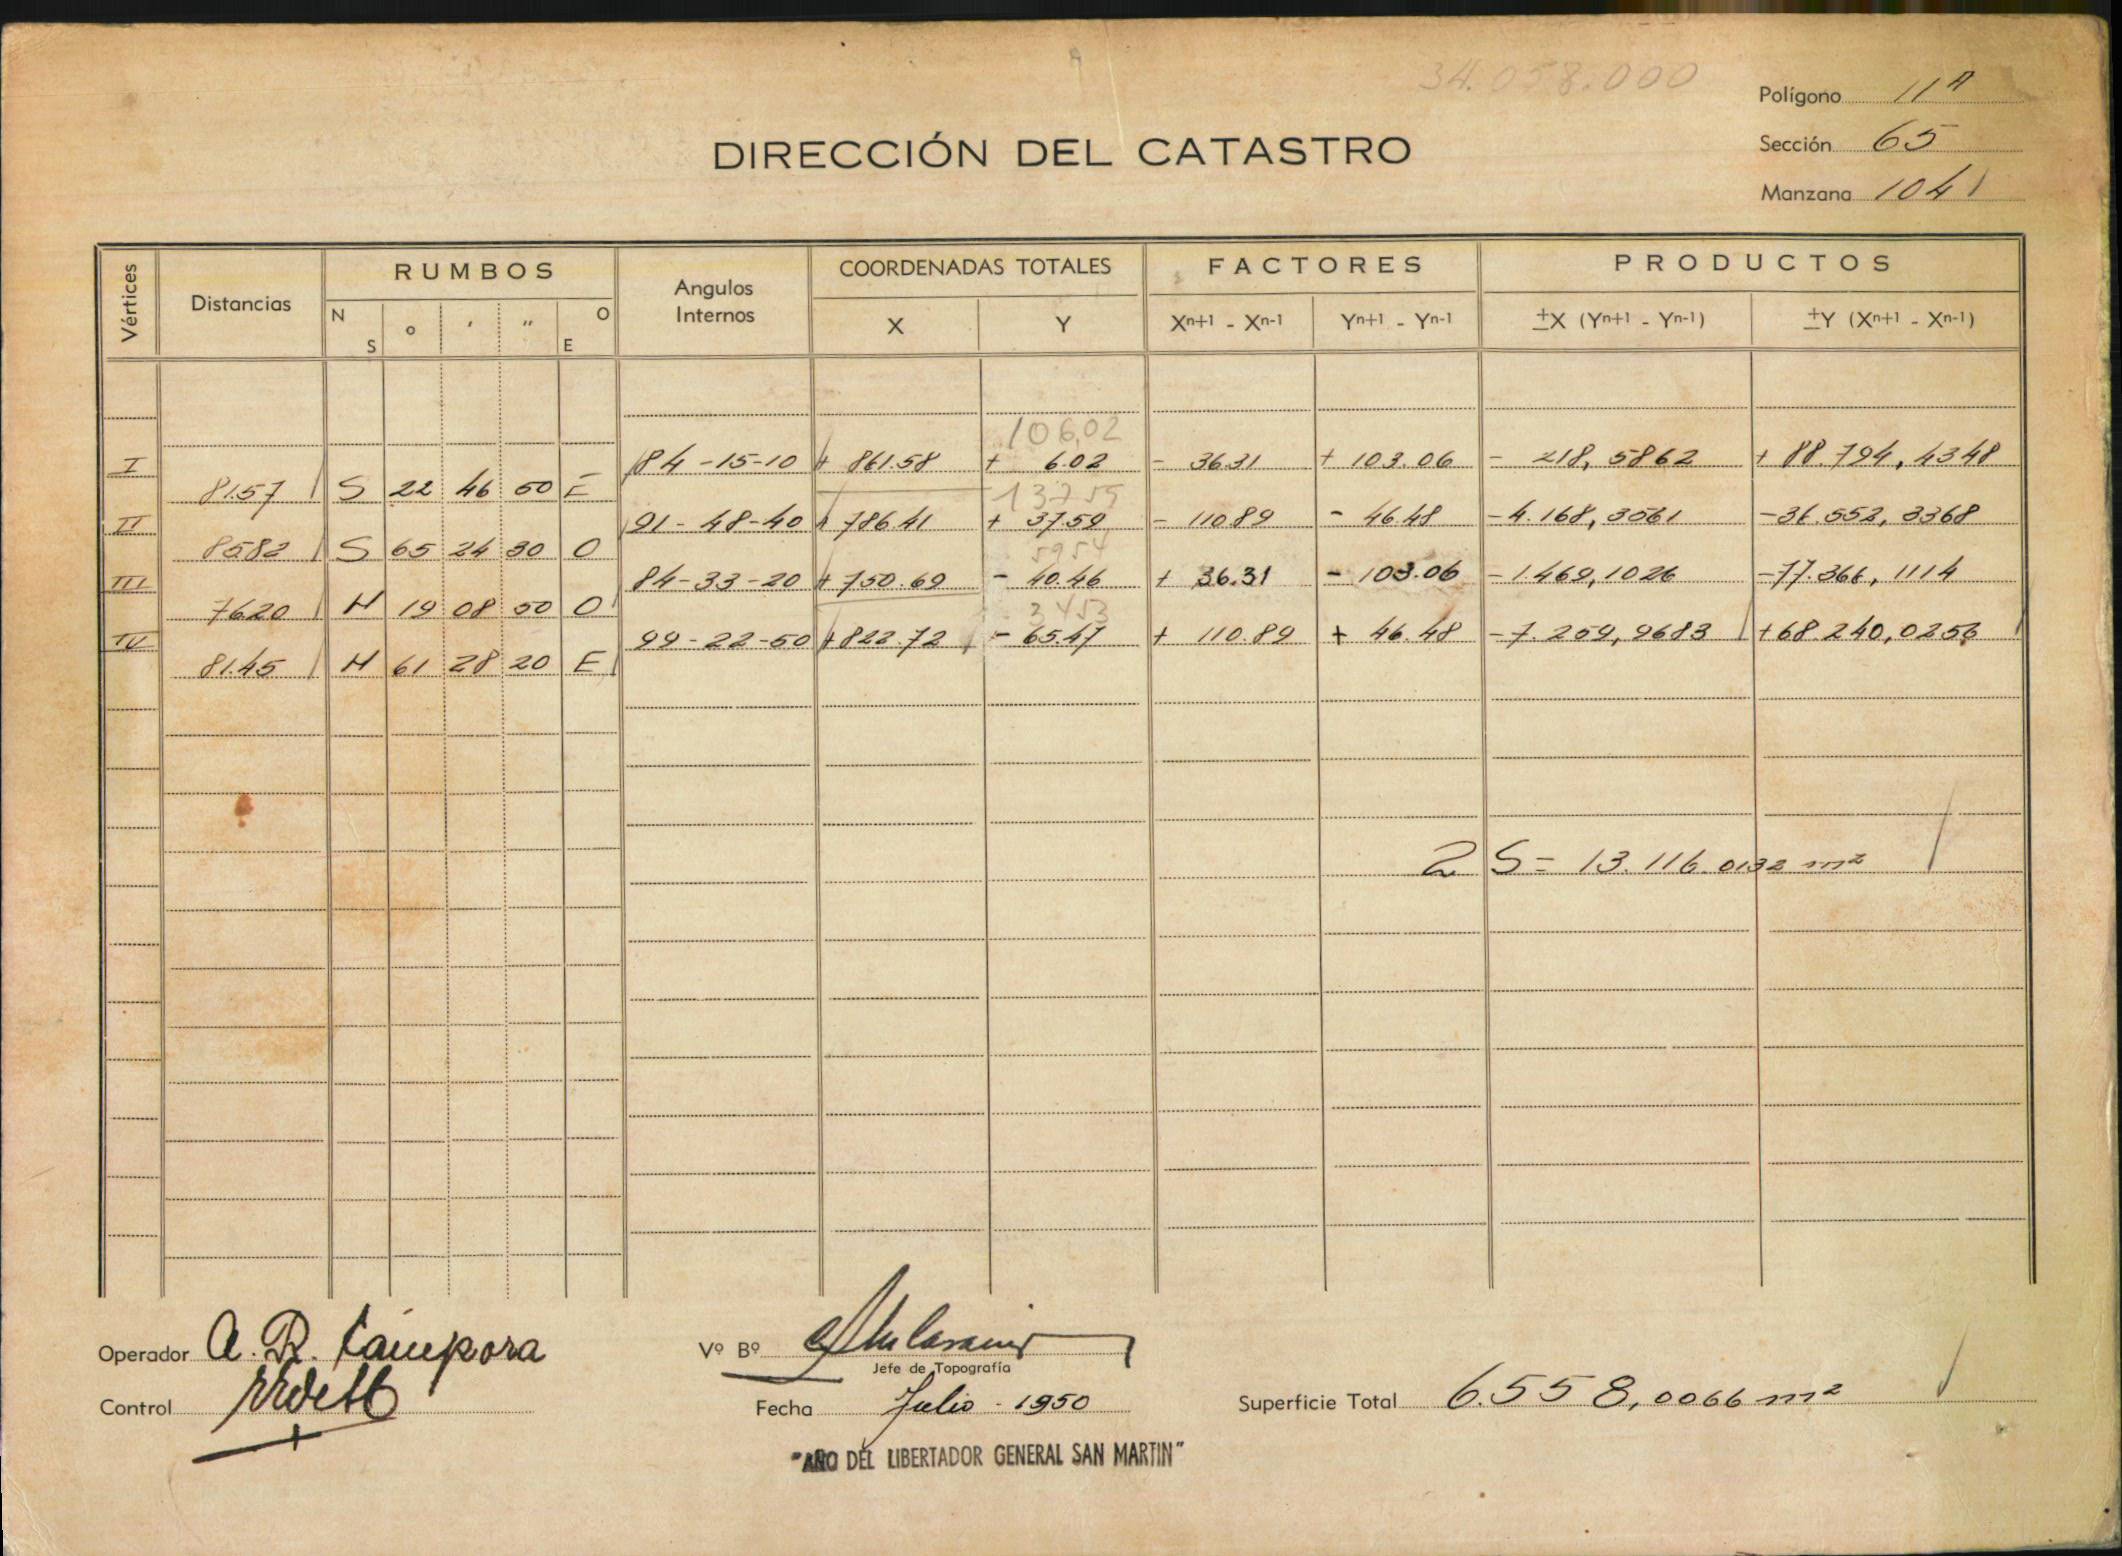 34.058.000
Polígono 11A
DIRECCIÓN DEL CATASTRO
Sección 65
Manzana 1041
Vértices Distancias RUMBOS Angulos Internos COORDENADAS TOTALES FACTORES PRODUCTOS
N S ° ' " O E X Y Xn+1 - Xn-1 Yn+1 - Yn-1 ±X (Yn+1 - Yn-1) ±Y (Xn+1 - Xn-1)
106,02
I 84-15-10 + 861.58 + 6.02 - 36.31 + 103.06 - 218,5862 + 88.794,4348
81.57 S 22 46 50 E 13759
II 91-48-40 + 786.41 + 37.59 - 110.89 - 46.48 - 4.168,3561 - 36.552,3368
85.82 S 65 24 30 O 5954
III 84-33-20 + 750.69 - 40.46 + 36.31 - 103.06 - 1.469,1026 - 77.366,1114
76.20 N 19 08 50 O 3453
IV 99-22-50 + 822.72 - 65.47 + 110.89 + 46.48 - 7.259,9683 + 38.240,0256
81.45 N 61 28 20 E
2 S = 13.116.0132 m²
Operador A. R. Cámpora
Vº Bº
Jefe de Topografía
Control
Fecha Julio - 1950
Superficie Total 6.558,0066 m²
"AÑO DEL LIBERTADOR GENERAL SAN MARTIN"